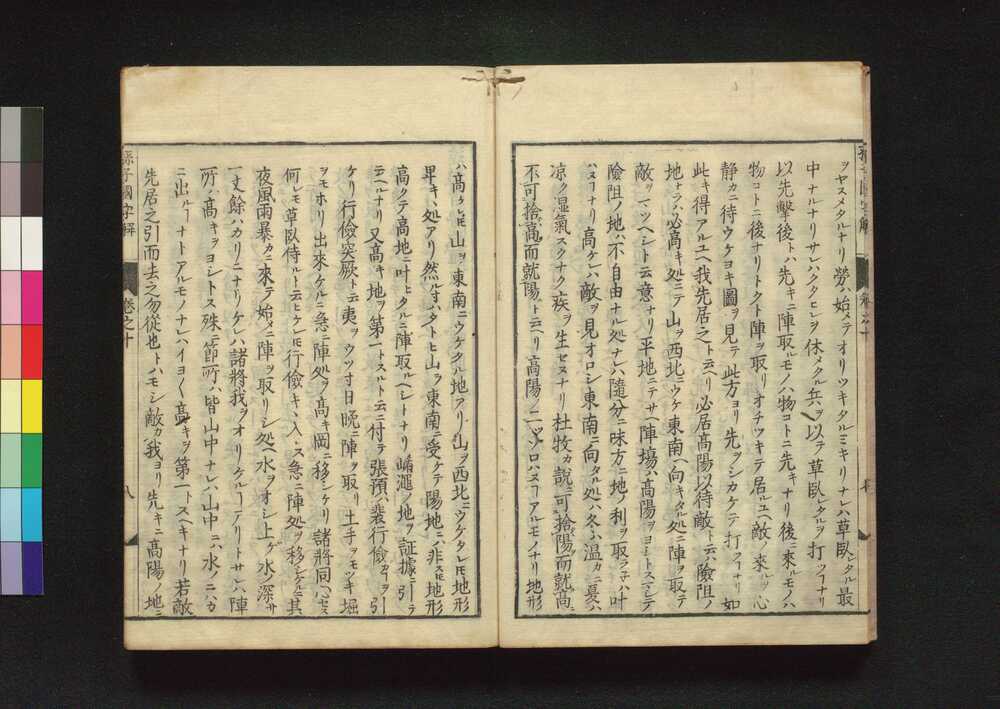 ヲヤスメタルナリ勞ハ始メテオリツキタルミキリナレハ草臥レタル最
中ナルナリサレハクタヒレヲ休メタル兵ヲ以テ草臥レタルヲ打ツコナリ
以先擊後トハ先キニ陣取ルモノハ物コトニ先キナリ後ニ來ルモノハ
物コトニ後ナリトク陣ヲ取リオチツキテ居ルユヘ敵ノ來ルヲ心
静カニ待ウケヨキ圖ヲ見テ此方ヨリ先ヲシカケテ打コナリ如
此キ得アルユヘ我先居之ト云ヘリ必居高陽以待敵ト云ハ險阻ノ
地ナラハ必高キ処ニテ山ヲ西北ニウケ東南ヘ向キタル処ニ陣ヲ取テ
敵ヲマツヘシト云意ナリ平地ニテサヘ陣塲ハ高陽ヲヨミトスマシテ
險阻ノ地ハ不自由ナル処ナレハ隨分ニ味方ニ地ノ利ヲ取ラ子ハ叶
ハヌコナリ高ケレハ敵ヲ見オロシ東南ニ向タル処ハ冬ハ温カニ夏ハ
凉ク湿氣スクナク疾ヲ生セヌナリ杜牧カ說ニ可捨陽而就高
不可捨高而就陽ト云ヘリ高陽ノ二ツソロハヌコアルモノナリ地形
ハ高ケレ𪜈山ヲ東南ニウケタル地アリ山ヲ西北ニウケタレ𪜈地形
卑キ処アリ然ル寸ハタトヒ山ヲ東南ニ受ケテ陽地ニハ非ス𪜈地形
高クテ高地ニ叶ヒタルニ陣取ルヘシトナリ崤澠ノ地ヲ証據ニ引テ
云ヘルナリ又高キ地ヲ第一トスルト云ニ付テ張預ハ裴行儉カコヲ引
ケリ行儉突厥ト云夷ヲウツ寸日晩ニ陣ヲ取リ土手ヲモツキ堀
ヲモホリ出來ケルニ急ニ陣処ヲ高キ岡ニ移シケリ諸將同心セス
何レモ草臥侍ルト云ヒケレ𪜈行儉キヽ入レス急ニ陣処ヲ移シケルニ其
夜風雨暴カニ來テ始メニ陣ヲ取リシ処ヘ水ヲオシ上ケ水ノ深サ
一丈餘ハカリニナリケレハ諸將我ヲオリケルコアリトサレハ陣
所ノ高キヲヨシトス殊ニ節所ハ皆山中ナレハ山中ニハ水ノニハカ
ニ出ルコナトアルモノナレハイヨ〱高キヲ第一トスヘキナリ若敵
先居之引而去之勿從也トハモシ敵カ我ヨリ先キニ高陽ノ地ニ
孫子國字解
卷之十
八